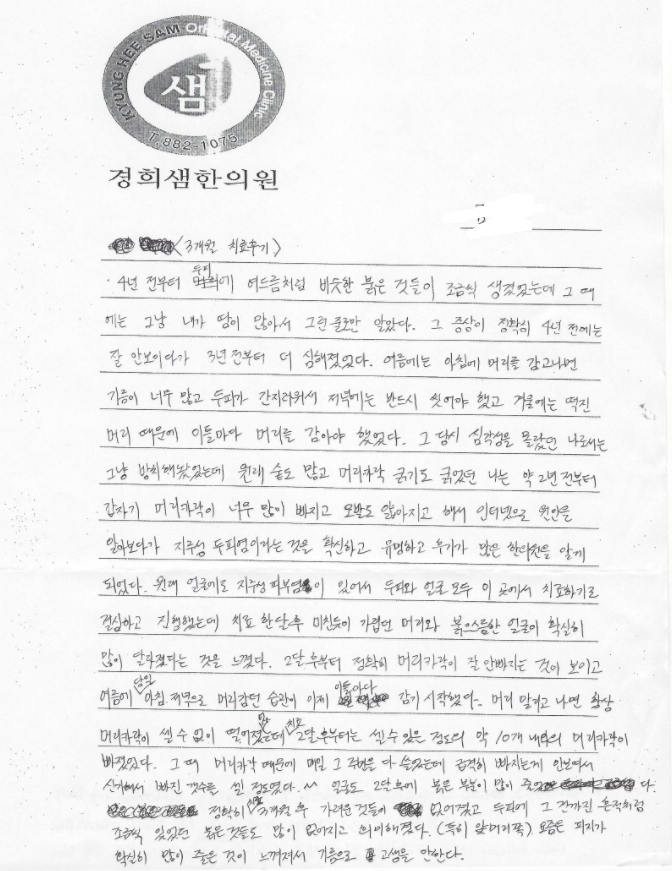 KYUNG HEE SAM Oriental Medicine Clinic
샘
T.882-1075
경희샘한의원
<3개월 치료후기>
두피
· 4년 전부터 에 여드름처럼 비슷한 붉은 것들이 조금씩 생겼었는데 그 때
에는 그냥 내가 땀이 많아서 그런줄로만 알았다. 그 증상이 정확히 4년 전에는
잘 안보이다가 3년전부터 더 심해졌었다. 여름에는 아침에 머리를 감고나면
기름이 너무 많고 두피가 간지러워서 저녁에는 반드시 씻어야 했고 겨울에는 떡진
머리 때문에 이틀마다 머리를 감아야 했었다. 그 당시 심각성을 몰랐던 나로서는
그냥 방치해놨었는데 원래 숱도 많고 머리카락 굵기도 굵었던 나는 약 2년전부터
갑자기 머리카락이 너무 많이 빠지고 모발도 얇아지고 해서 인터넷으로 원인을
알아보다가 지루성 두피염이라는 것을 확신하고 유명하고 후기가 많은 한의원을 알게
되었다. 원래 얼굴에도 지루성 피부염이 있어서 두피와 얼굴 모두 이 곳에서 치료하기로
결심하고 진행했는데 치료 한달후 미친듯이 가렵던 머리와 붉으스름한 얼굴이 확실히
많이 달라졌다는 것을 느꼈다. 2달후부터 정확히 머리카락이 잘 안빠지는 것이 보이고
여름에 매일 아침 저녁으로 머리감던 습관이 이제 이틀마다 감기 시작했다.. 머리 말리고 나면 항상
머리카락이 셀 수 없이 떨어졌는데 치료 2달후부터는 셀 수 있는 정도의 약 10개 내외의 머리카락이
빠졌었다. 그 때 머리카락 때문에 매일 그 다 급격히 빠지는게 안보여서
신기해서 빠진 갯수를 셀 정도였다. ^^ 얼굴도 2달후에 붉은 부분이 많이 다.
정확히 3개월 후 가려운것들이 없어졌고 두피에 그 전까진 흔적처럼
조금씩 있었던 붉은것들도 많이 없어지고 희미해졌다. (특히 앞머리쪽) 요즘은 피지가
확실히 많이 줄은 것이 느껴져서 기름으로 고생을 안한다.